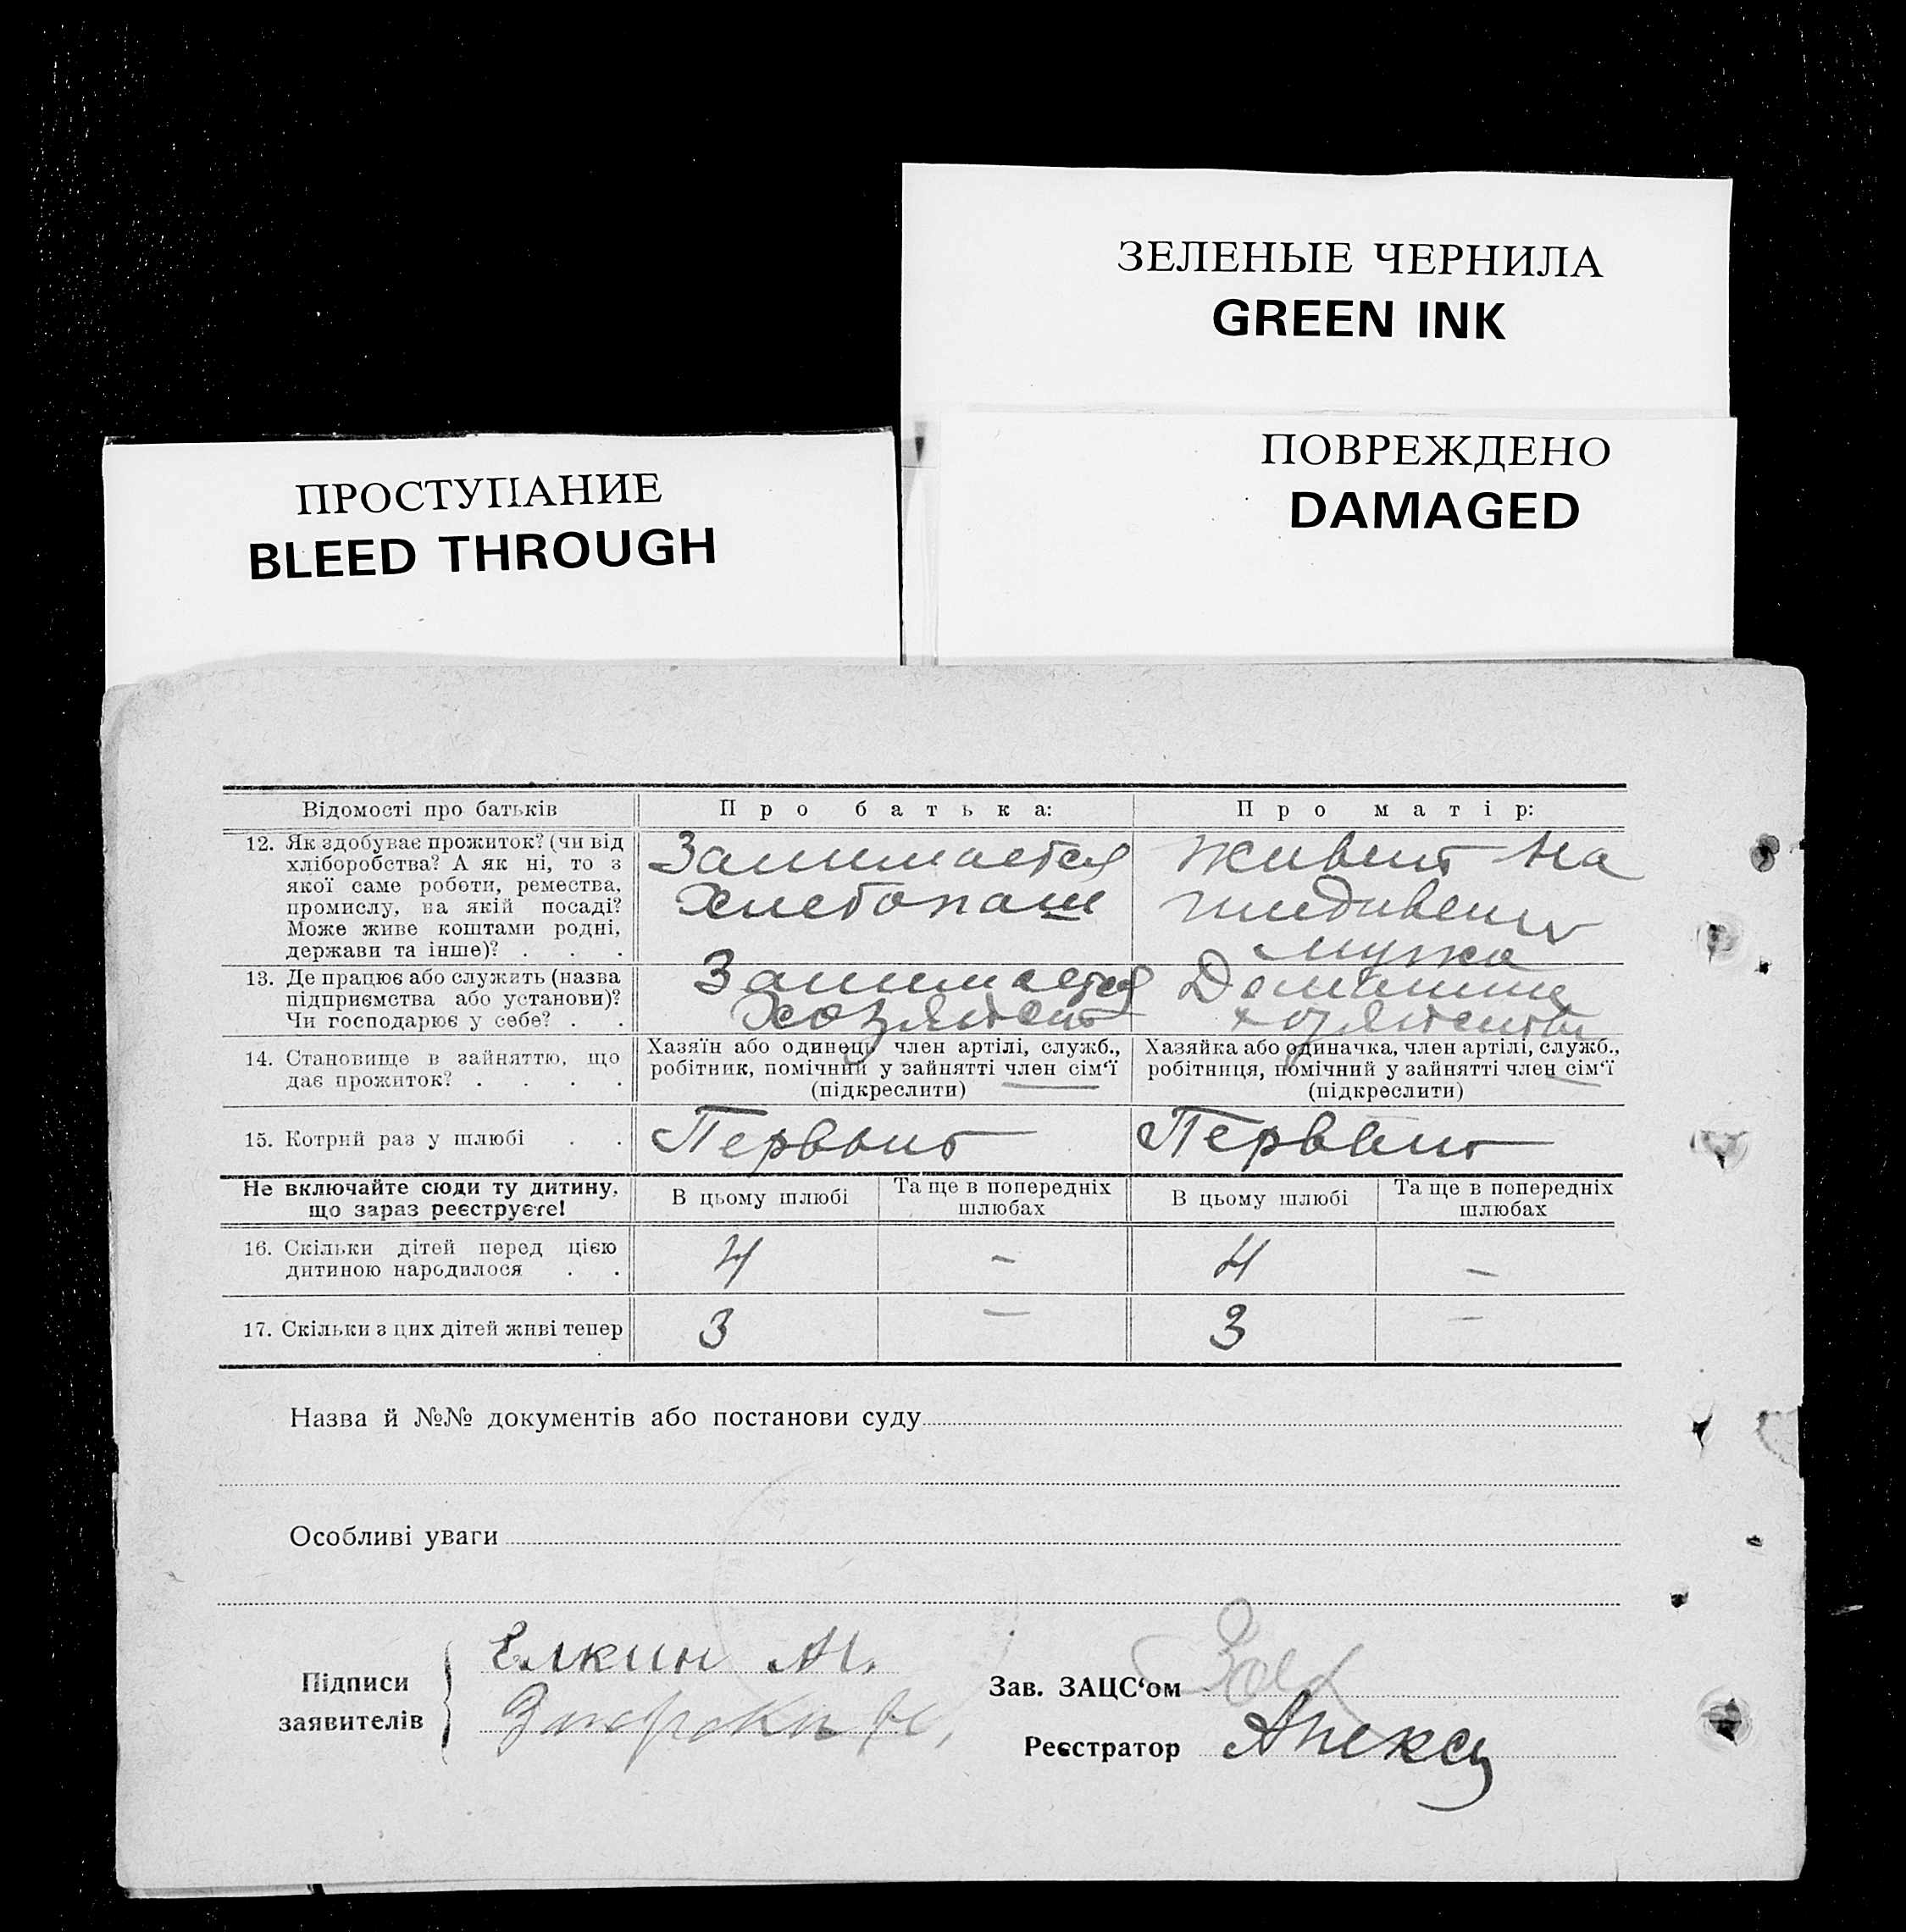 ЗЕЛЕНЫЕ ЧЕРНИЛА
GREEN INK
ПОВРЕЖДЕНО
DAMAGED
ПРОСТУПАНИЕ
BLEED THROUGH
Відомості про батьків
Про батька:
Про матір:
12. Як здобуває прожиток? (чи від
хліборобства? А як ні, то з
якої саме роботи, ремества,
промислу, на якій посаді?
Може живе коштами родні,
держави та інше)? . . .
Занимается
Хлебопаш
живет на
иждивении
мужа
13. Де працює або служить (назва
підприємства або установи)?
Чи господарює у себе? . .
Занимается
Домашним
14. Становище в зайняттю, що
дає прожиток? . . . .
Хазяїн або одинець член артілі, служб.,
робітник, помічний у зайнятті член сім‘ї
(підкреслити)
Хазяйка або одиначка, член артілі, служб.,
робітниця, помічний у зайнятті член сім‘ї
(підкреслити)
15. Котрий раз у шлюбі . .
Первый
Первый
Не включайте сюди ту дитину,
що зараз реєструєте!
В цьому шлюбі
Та ще в попередніх
шлюбах
В цьому шлюбі
Та ще в попередніх
шлюбах
16. Скільки дітей перед цією
дитиною народилося . .
4
–
4
–
17. Скільки з цих дітей живі тепер
3
–
3
–
Назва й №№ документів або постанови суду
Особливі уваги
Підписи
заявителів
Елкин М.
Зав. ЗАЦС‘ом
Реєстратор